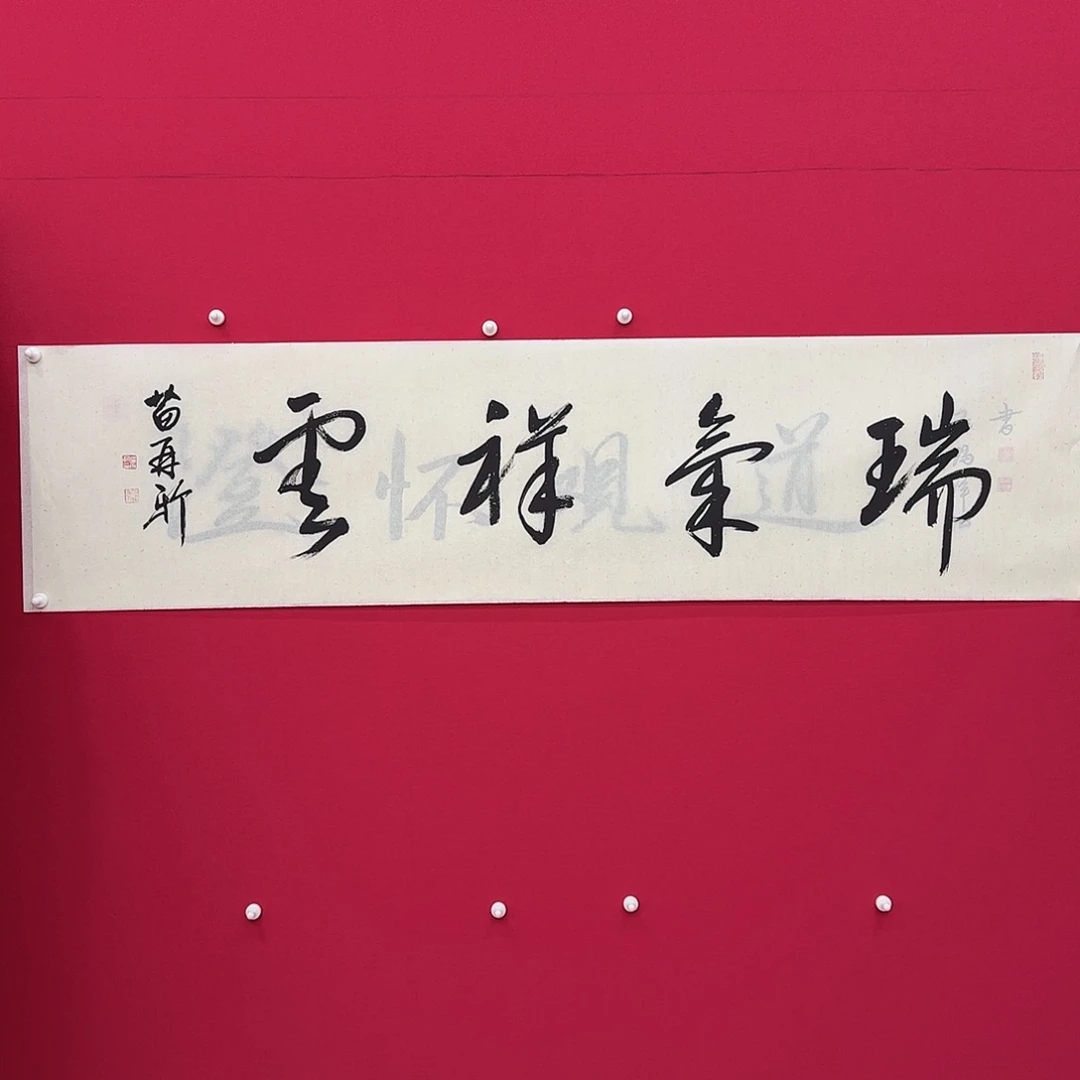 瑞氣祥雲
苗再新